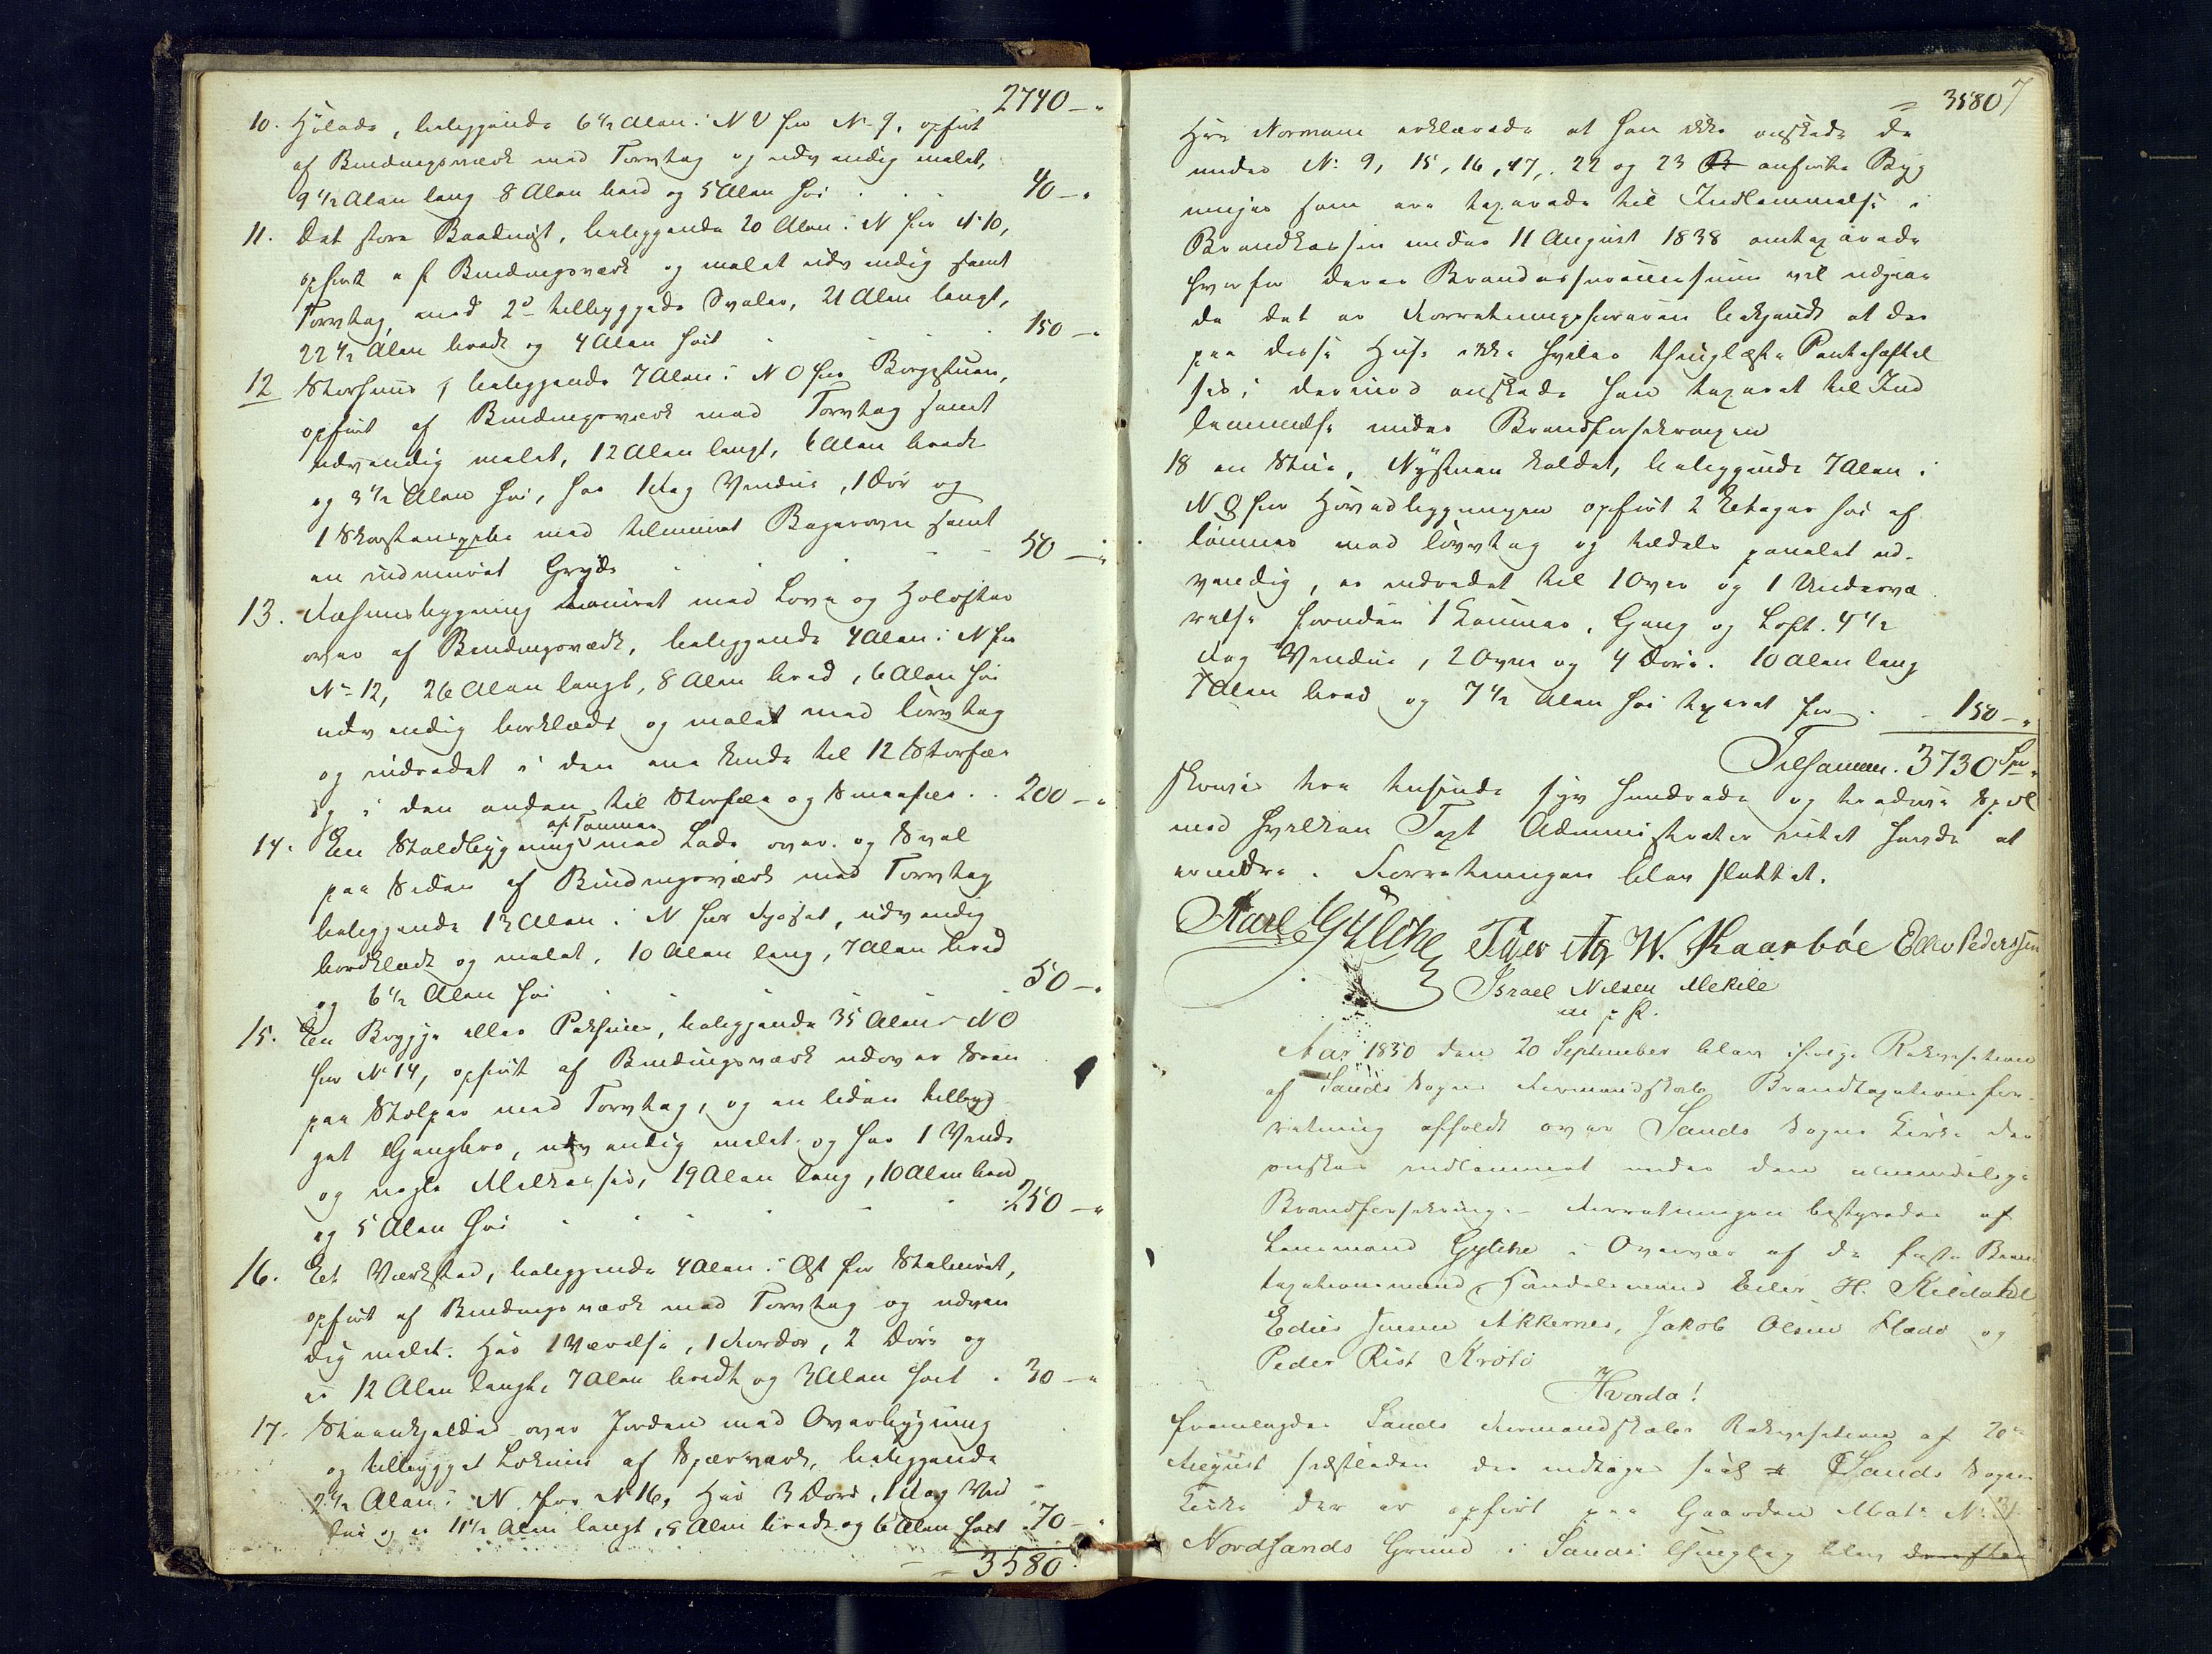 2740 —"
10. Hølade, beliggende 6½ Alen i NV for No 9, opført
af Bindingsværk med Torvtag og udvendig malet,
9½ Alen lang 8 Alen bred og 5 Alen høi 40 —"
11. Det store Baadnøst, beliggende 20 Alen i N for No 10,
opført af Bindingsværk og malet udvendig samt
Torvtag, med 2de tilbyggede Svaler, 21 Alen langt,
22½ Alen bredt og 4 Alen høit 150 —"
12 Storhuus, beliggende 7 Alen i NO for Borgestuen,
opført af Bindingsværk med Torvtag samt
udvendig malet, 12 Alen langt, 6 Alen bredt
og 3½ Alen høi, har 1 Fag Vindue, 1 Dør og
1 Skorstenspibe med tilmuret Bagerovn samt
en indmuret Gryde 50 —"
13. Fæhuusbygning tømret med Love og Hølofter
over af Bindingsværk, beliggende 4 Alen i N for
No 12, 26 Alen langt, 8 Alen bred, 6 Alen høi
udvendig bordklædt og malet med Torvtag
og indredet i den ene Ende til 12 Storfæe
og i den anden til Storfæe og Smaafæe . . 200 —"
14. En Staldbygning af Tømmer med Lade over og Sval
paa Siden af Bindingsværk med Torvtag
beliggende 13 Alen i N for Fjøset, udvendig
bordklædt og malet, 10 Alen lang, 7 Alen bred
og 6½ Alen høi 50 —"
15. En Brygge eller Pakhuus, beliggende 35 Alen i NO
for No 14, opført af Bindingsværk udover Søen
paa Stolper med Torvtag, og en liden tilbyg
get Gangbro, udvendig malet og har 1 Vinde
og nogle , 19 Alen lang, 10 Alen bred
og 5 Alen høi 250 —"
16. Et Værksted, beliggende 4 Alen i Øst for Staburet,
opført af Bindingsværk med Torvtag og udven
dig malet. Har 1 Værelse, 1 Korridor, 2 Døre og
er 12 Alen langt, 7 Alen bredt og 3 Alen høit . 30 —"
17. Steenkjelder over Jorden med Overbygning
og tilbygget af Sperværk, beliggende
2½ Alen i N. for No 16, Har 3 Døre, 1 Fag Vin
due og er 11½ Alen langt, 8 Alen bredt og 6 Alen høit 70 —"
= 3580
= 3580 7
Herr Normann erklærede at han ikke ønskede de
under No 9, 15, 16, 17, 22 og 23 anførte Byg
ninger som ere taxerede til Indlemmelse i
Brandkassen under 11 August 1838 omtaxerede
hvorfor deres Brandassurancesum vil udgaae
da det er Forretningsføreren bekjendt at der
paa disse Huse ikke hviler thinglæste Pantehæftel
ser; derimod ønskede han taxeret til Ind
lemmelse under Brandforsikringen
18 en Stue, Nystuen kaldet, beliggende 7 Alen i
NO for Hovedbygningen opført 2 Etager høi af
Tømmer med Torvtag og tildels panelet ud-
vendig, er indredet til 1 Over og 1 Undervæ
relse foruden 1 Kammer, Gang og Loft. 4½
Fag Vindue, 2 Ovne og 4 Døre. 10 Alen lang
7 Alen bred og 7½ Alen høi taxeret for . 150 —"
Tilsammen. 3730 Spd
skriver tre tusinde syv hundrede og tredive Spd
med hvilken Taxt Administrator intet havde at
erindre. Forretningen blev sluttet.
Karl Gylche Tüer Ag W. Kaarbøe Edv Pederssen
Israel Nilsen Mekile
m p P.
Aar 1850 den 20 September blev ifølge Rekvisition
af Sands Sogns Formandskab Brandtaxationsfor-
retning afholdt over Sands Sogns Kirke der
ønskes indlemmet under den almindelige
Brandforsikring. – Forretningen bestyredes af
Lensmand Gylche i Overvær af de faste Brand
taxationsmænd Handelsmand Eiler H. Kildahl,
Edies Jensen Akkernes, Jakob Olsen Flado og
Peder Rist Krøtø
Hvorda!
fremlagdes Sands Formandskabs Rekvisition af 20de
August sidstleden der indtages saal. Sands Sogns
Kirke der er opført paa Gaarden Mat: No 31
Nordsands Grund i Sands Thinglag blev derefter